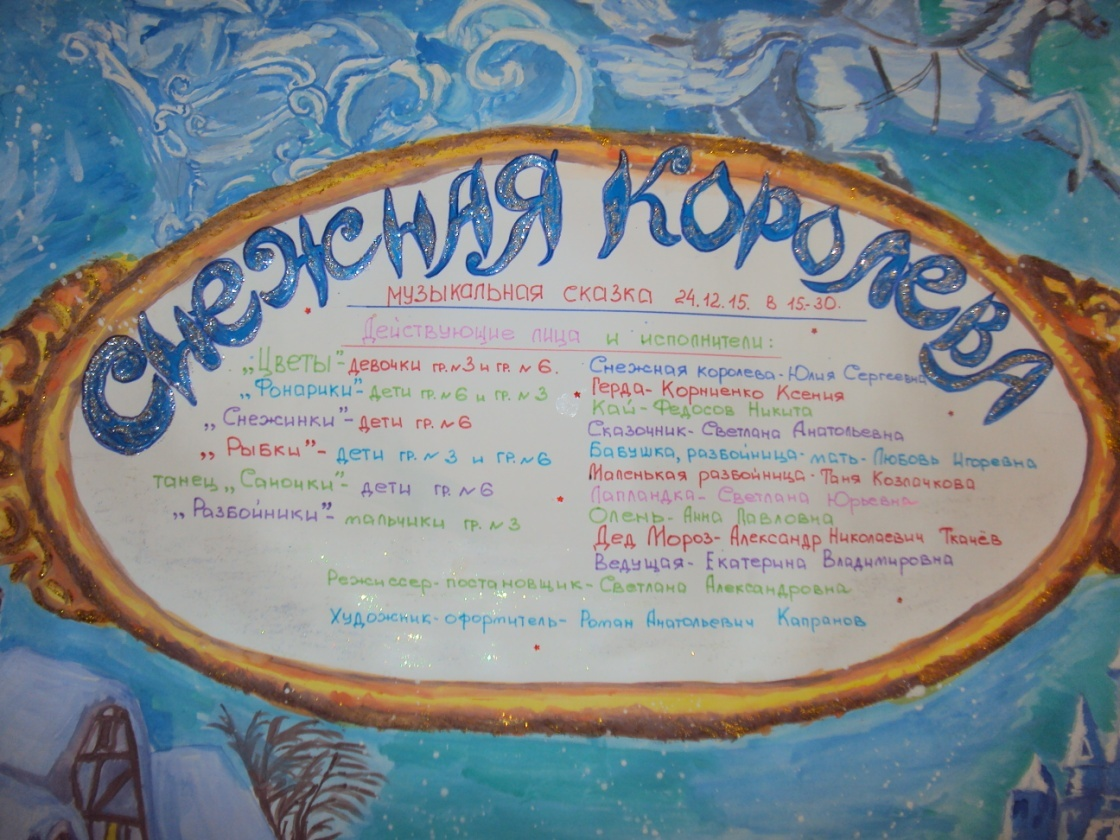 СНЕЖНАЯ КОРОЛЕВА
музыкальная сказка 24.12.15. в 15-30.
Действующие лица и исполнители:
„Цветы"- девочки гр. №3 и гр. №6.
„Фонарики"- дети гр. №6 и гр. №3
„Снежинки"- дети гр. №6
„Рыбки"- дети гр. №3 и гр. №6
танец „Саночки"- дети гр. №6
„Разбойники"- мальчики гр. №3
Снежная королева- Юлия Сергеевна
Герда- Корниенко Ксения
Кай- Федосов Никита
Сказочник- Светлана Анатольевна
Бабушка, разбойница-мать- Любовь Игоревна
Маленькая разбойница- Таня Козлачкова
Лапландка- Светлана Юрьевна
Олень- Анна Павловна
Дед Мороз- Александр Николаевич Ткачёв
Ведущая- Екатерина Владимировна
Режиссер-постановщик- Светлана Александровна
Художник-оформитель- Роман Анатольевич Капранов